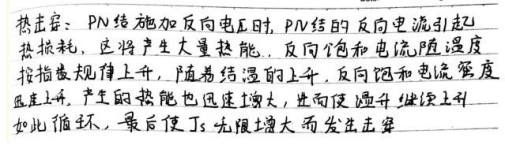 热击穿：PN结施加反向电压时，PN结的反向电流引起
热损耗，这将产生大量热能，反向饱和电流随温度
按指数规律上升，随着结温的上升，反向饱和电流密度
迅速上升，产生的热能也迅速增大，进而使温升继续上升
如此循环，最后使Js无限增大而发生击穿